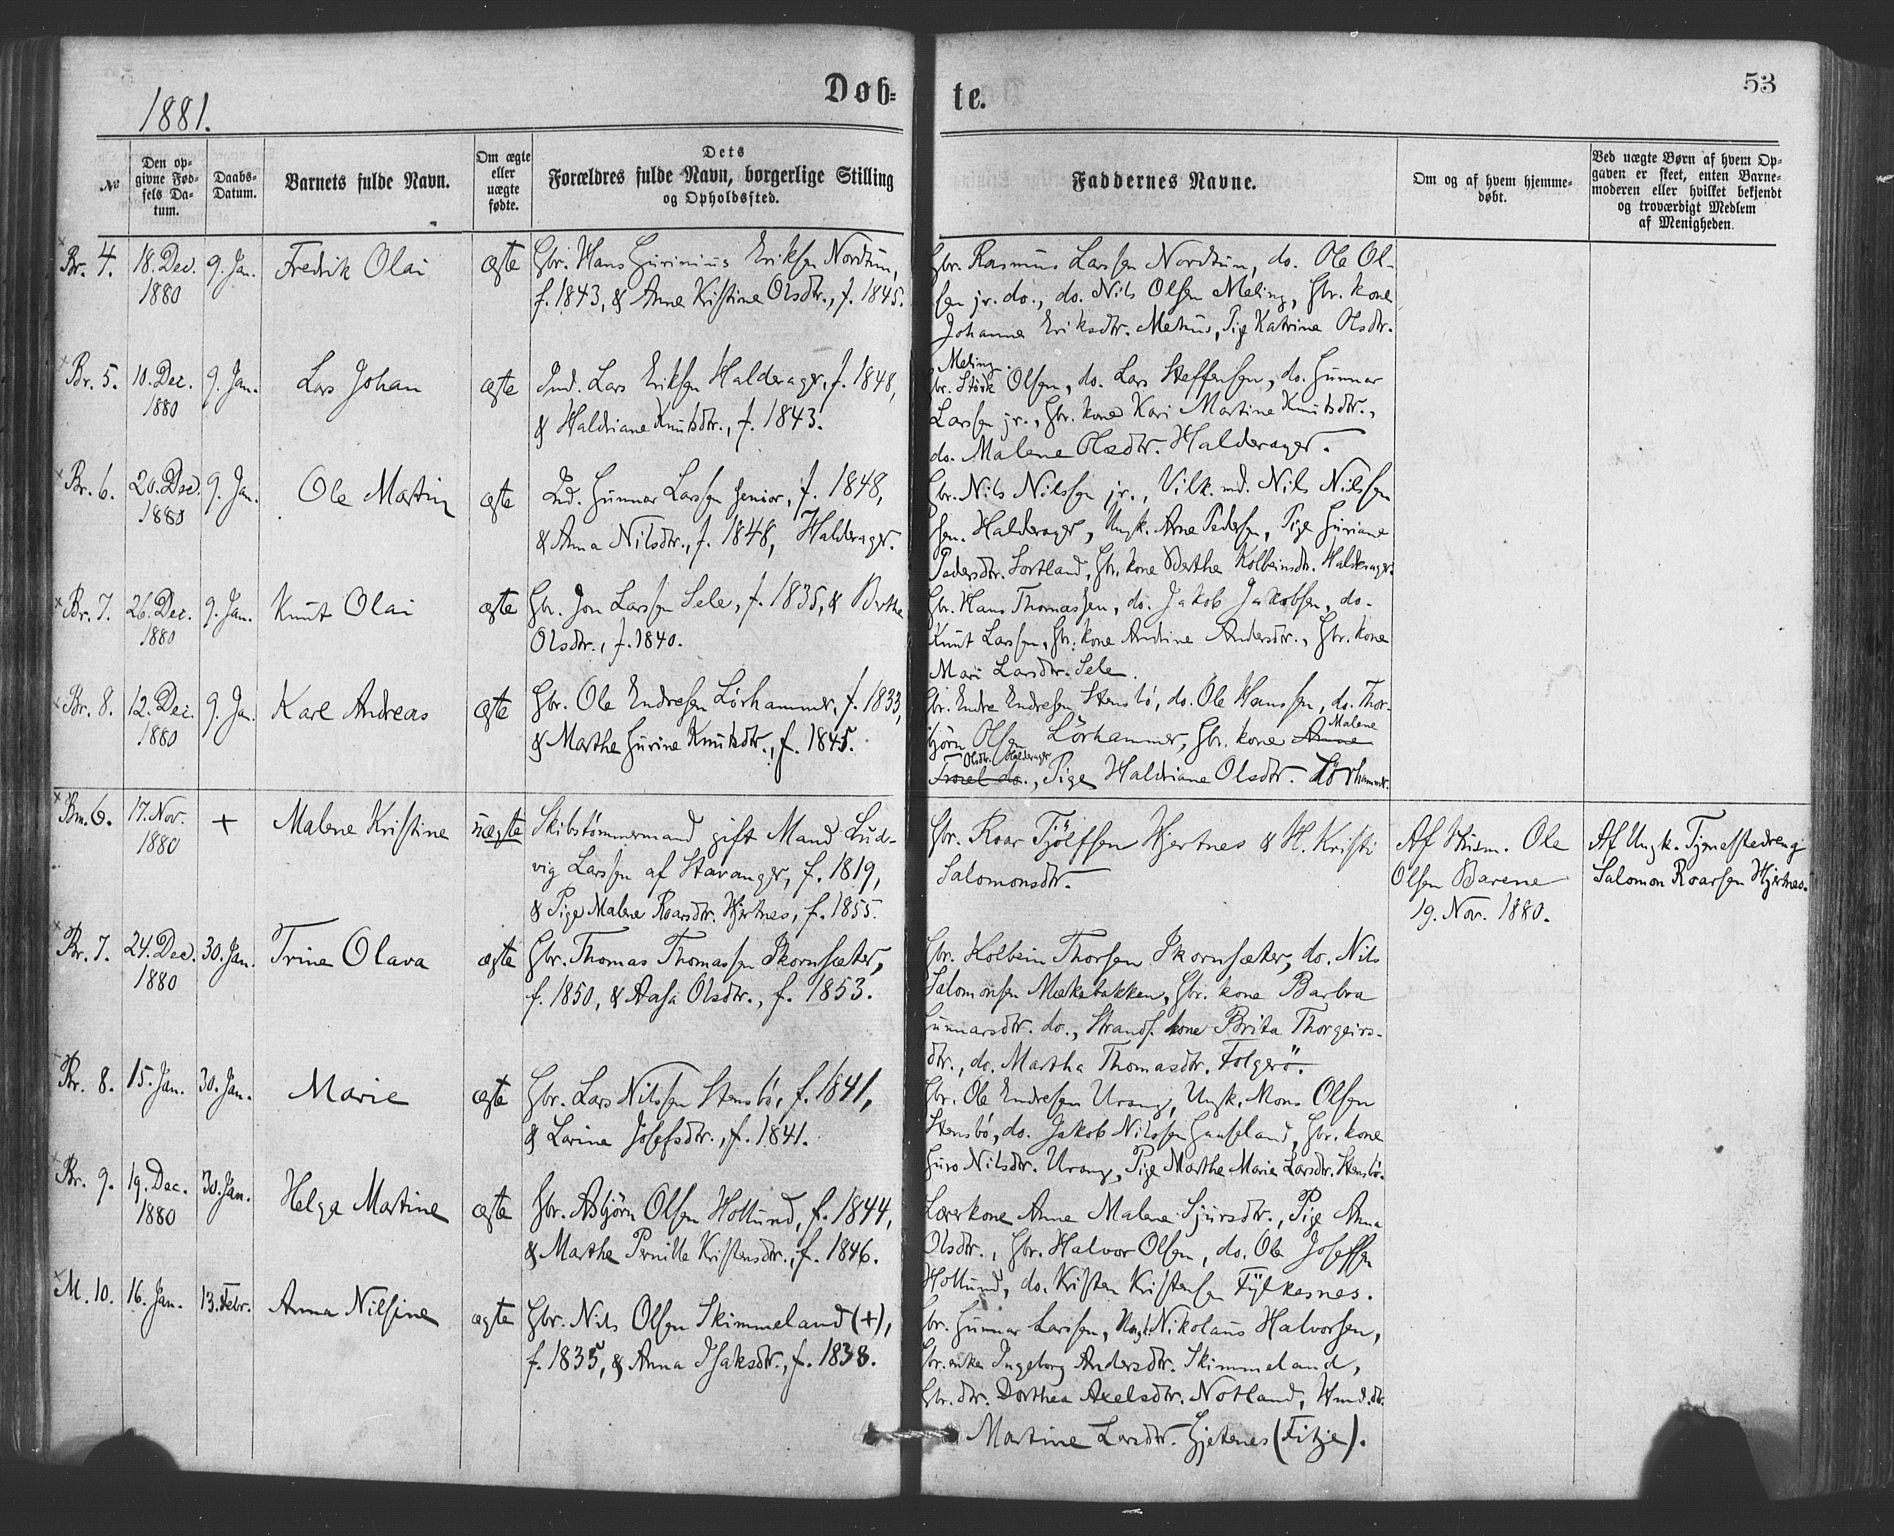 1881.
Døb-
te.
53
No
Den op-
givne Fød-
sels Da-
tum.
Daabs-
Datum.
Barnets fulde Navn.
Om ægte
eller
uægte
fødte.
Dets
Forældres fulde Navn, borgerlige Stilling
og Opholdssted.
Faddernes Navne.
Om og af hvem hjemme-
døbt.
Ved uægte Børn af hvem Op-
gaven er skeet, enten Barne-
moderen eller hvilket bekjendt
og troværdigt Medlem
af Menigheden.
Br. 4.
18. Dec.
1880
9. Jan.
Fredrik Olai
ægte
Gbr. Hans Eriksen Nordtun,
f. 1843, & Anne Kristine Olsdtr., f. 1845.
Gbr. Rasmus Larssen Nordtun, do. Ole Ol-
sen jr. do., do. Nils Olsen Meling, Gbr. kone
Johanne Eriksdtr. Mehus, Pige Katrine Olsdtr.
Meling.
Br. 5.
10. Dec.
1880
9. Jan.
Lars Johan
ægte
Ind. Lars Eriksen Halderager, f. 1848,
& Haldriane Knutsdtr., f. 1843.
Gbr. Störk Olsen, do. Lars Steffensen, do. Gunnar
Larssen jr., Gbr. kone Kari Martine Knutsdtr.,
do. Malene Olsdtr. Halderager.
Br. 6.
20. Dec.
1880
9. Jan.
Ole Martin
ægte
Ind. Gunnar Larssen senior, f. 1848,
& Anna Nilsdtr., f. 1848, Halderager.
Gbr. Nils Nilssen jr., Vilk. md. Nils Nilssen
sen. Halderager, Ungk. Arne Pedersen, Pige Guriane
Pedersdtr. Sortland, Gbr. kone Berthe Kolbeinsdtr. Halderager.
Br. 7.
26. Dec.
1880
9. Jan.
Knut Olai
ægte
Gbr. Jon Larssen Sele, f. 1835, & Berthe
Olsdtr., f. 1840.
Gbr. Hans Thomassen, do. Jakob Jakobsen, do.
Knut Larssen, Gbr. kone Andrine Andersdtr., Gbr. kone
Mari Larsdtr. Sele.
Br. 8.
12. Dec.
1880
9. Jan.
Karl Andreas
ægte
Gbr. Ole Endresen Lørhammer, f. 1833,
& Marthe Gurine Knutsdtr., f. 1845.
Gbr. Endre Endresen Stensbö, do. Ole Hanssen, do. Thor-
björn Olsen Lörhammer, Gbr. kone Anne Malene
Olsdtr. Halderager
do., Pige Haldriane Olsdtr. Lörhammer.
Bm. 6.
17. Nov.
1880
+
Malene Kristine
uægte
Skibstømmermand gift Mand Lud-
vig Larssen af Stavanger, f. 1819,
& Pige Malene Roarsdtr. Hjertnes, f. 1855.
Gbr. Roar Tjölfsen Hjertnes & H. Kristi
Salomonsdtr.
Af Husm. Ole
Olsen Barene
19. Nov. 1880.
Af Ungk. Tjenestedreng
Salomon Roarsen Hjertnes.
Br. 7.
24. Dec.
1880
30. Jan.
Trine Olava
ægte
Gbr. Thomas Thomassen Skornsæter,
f. 1850, & Aasa Olsdtr., f. 1853.
Gbr. Kolbein Thorsen Skornsæter, do. Nils
Salomonsen Mækebakken, Gbr. kone Barbra
Gunnarsdtr. do., Strands. kone Brita Thorgeirs-
dtr., do. Martha Thomasdtr. Folgerö.
Br. 8.
15. Jan.
30. Jan.
Marie
ægte
Gbr. Lars Nilssen Stensbö, f. 1841,
& Larina Josefsdtr., f. 1841.
Gbr. Ole Endresen Urang, Ungk. Mons Olsen
Stensbö, do. Jakob Nilssen Gauseland, Gbr. kone
Guro Nilsdtr. Urang, Pige Marthe Marie Larsdtr. Stensbö.
Br. 9.
19. Dec.
1880
30. Jan.
Helga Martine
ægte
Gbr. Asbjörn Olsen Hollund, f. 1844,
& Marthe Pernille Kristensdtr., f. 1846.
Lærerkone Anne Malene Sjursdtr., Pige Anna
Olsdtr., Gbr. Halvor Olsen, do. Ole Josefsen
Hollund, do. Kristen Kristensen Fylkesnes.
M. 10.
16. Jan.
13. Febr.
Anna Nilsine
ægte
Gbr. Nils Olsen Skimmeland (+),
f. 1835, & Anna Isaksdtr., f. 1838.
Gbr. Gunnar Larssen, Ungk. Nikolaus Halvorsen,
Gbr. enke Ingeborg Andersdtr. Skimmeland,
Gbr. dtr. Dorthea Axelsdtr. Notland, Hmd. dtr.
Martine Larsdtr. Gjetenes (Fitje).